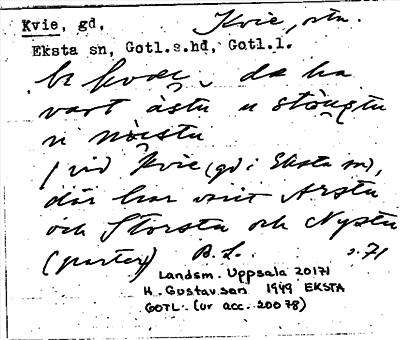 Kvie, gd, Kvie, ortn.
Eksta sn, Gotl.s.hd, Gotl.l.
bi kvie, da ha
vart ästu u stöugtu
u nöistu
/ vid Kvie (gd i Eksta sn),
där har varit Arstu
och Storstu och Nystu
(parter) B.L. s.71
Landsm. Uppsala 20171
H. Gustavson 1949 EKSTA
GOTL. (ur acc. 20078)